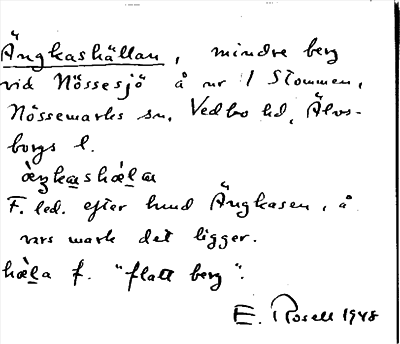 Ängkashällan, mindre berg
vid Nössesjö å nr 1 Stommen,
Nössemarks sn, Vedbo hd, Älvs-
borgs l.
àŋkashæ̀la
F. led. efter hund Ängkasen, å
vars mark det ligger.
hæ̀la f. "flatt berg".
E. Rosell 1948